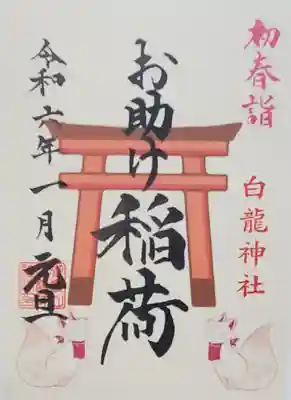 初春詣
白龍神社
お助け稲荷
令和六年一月元旦